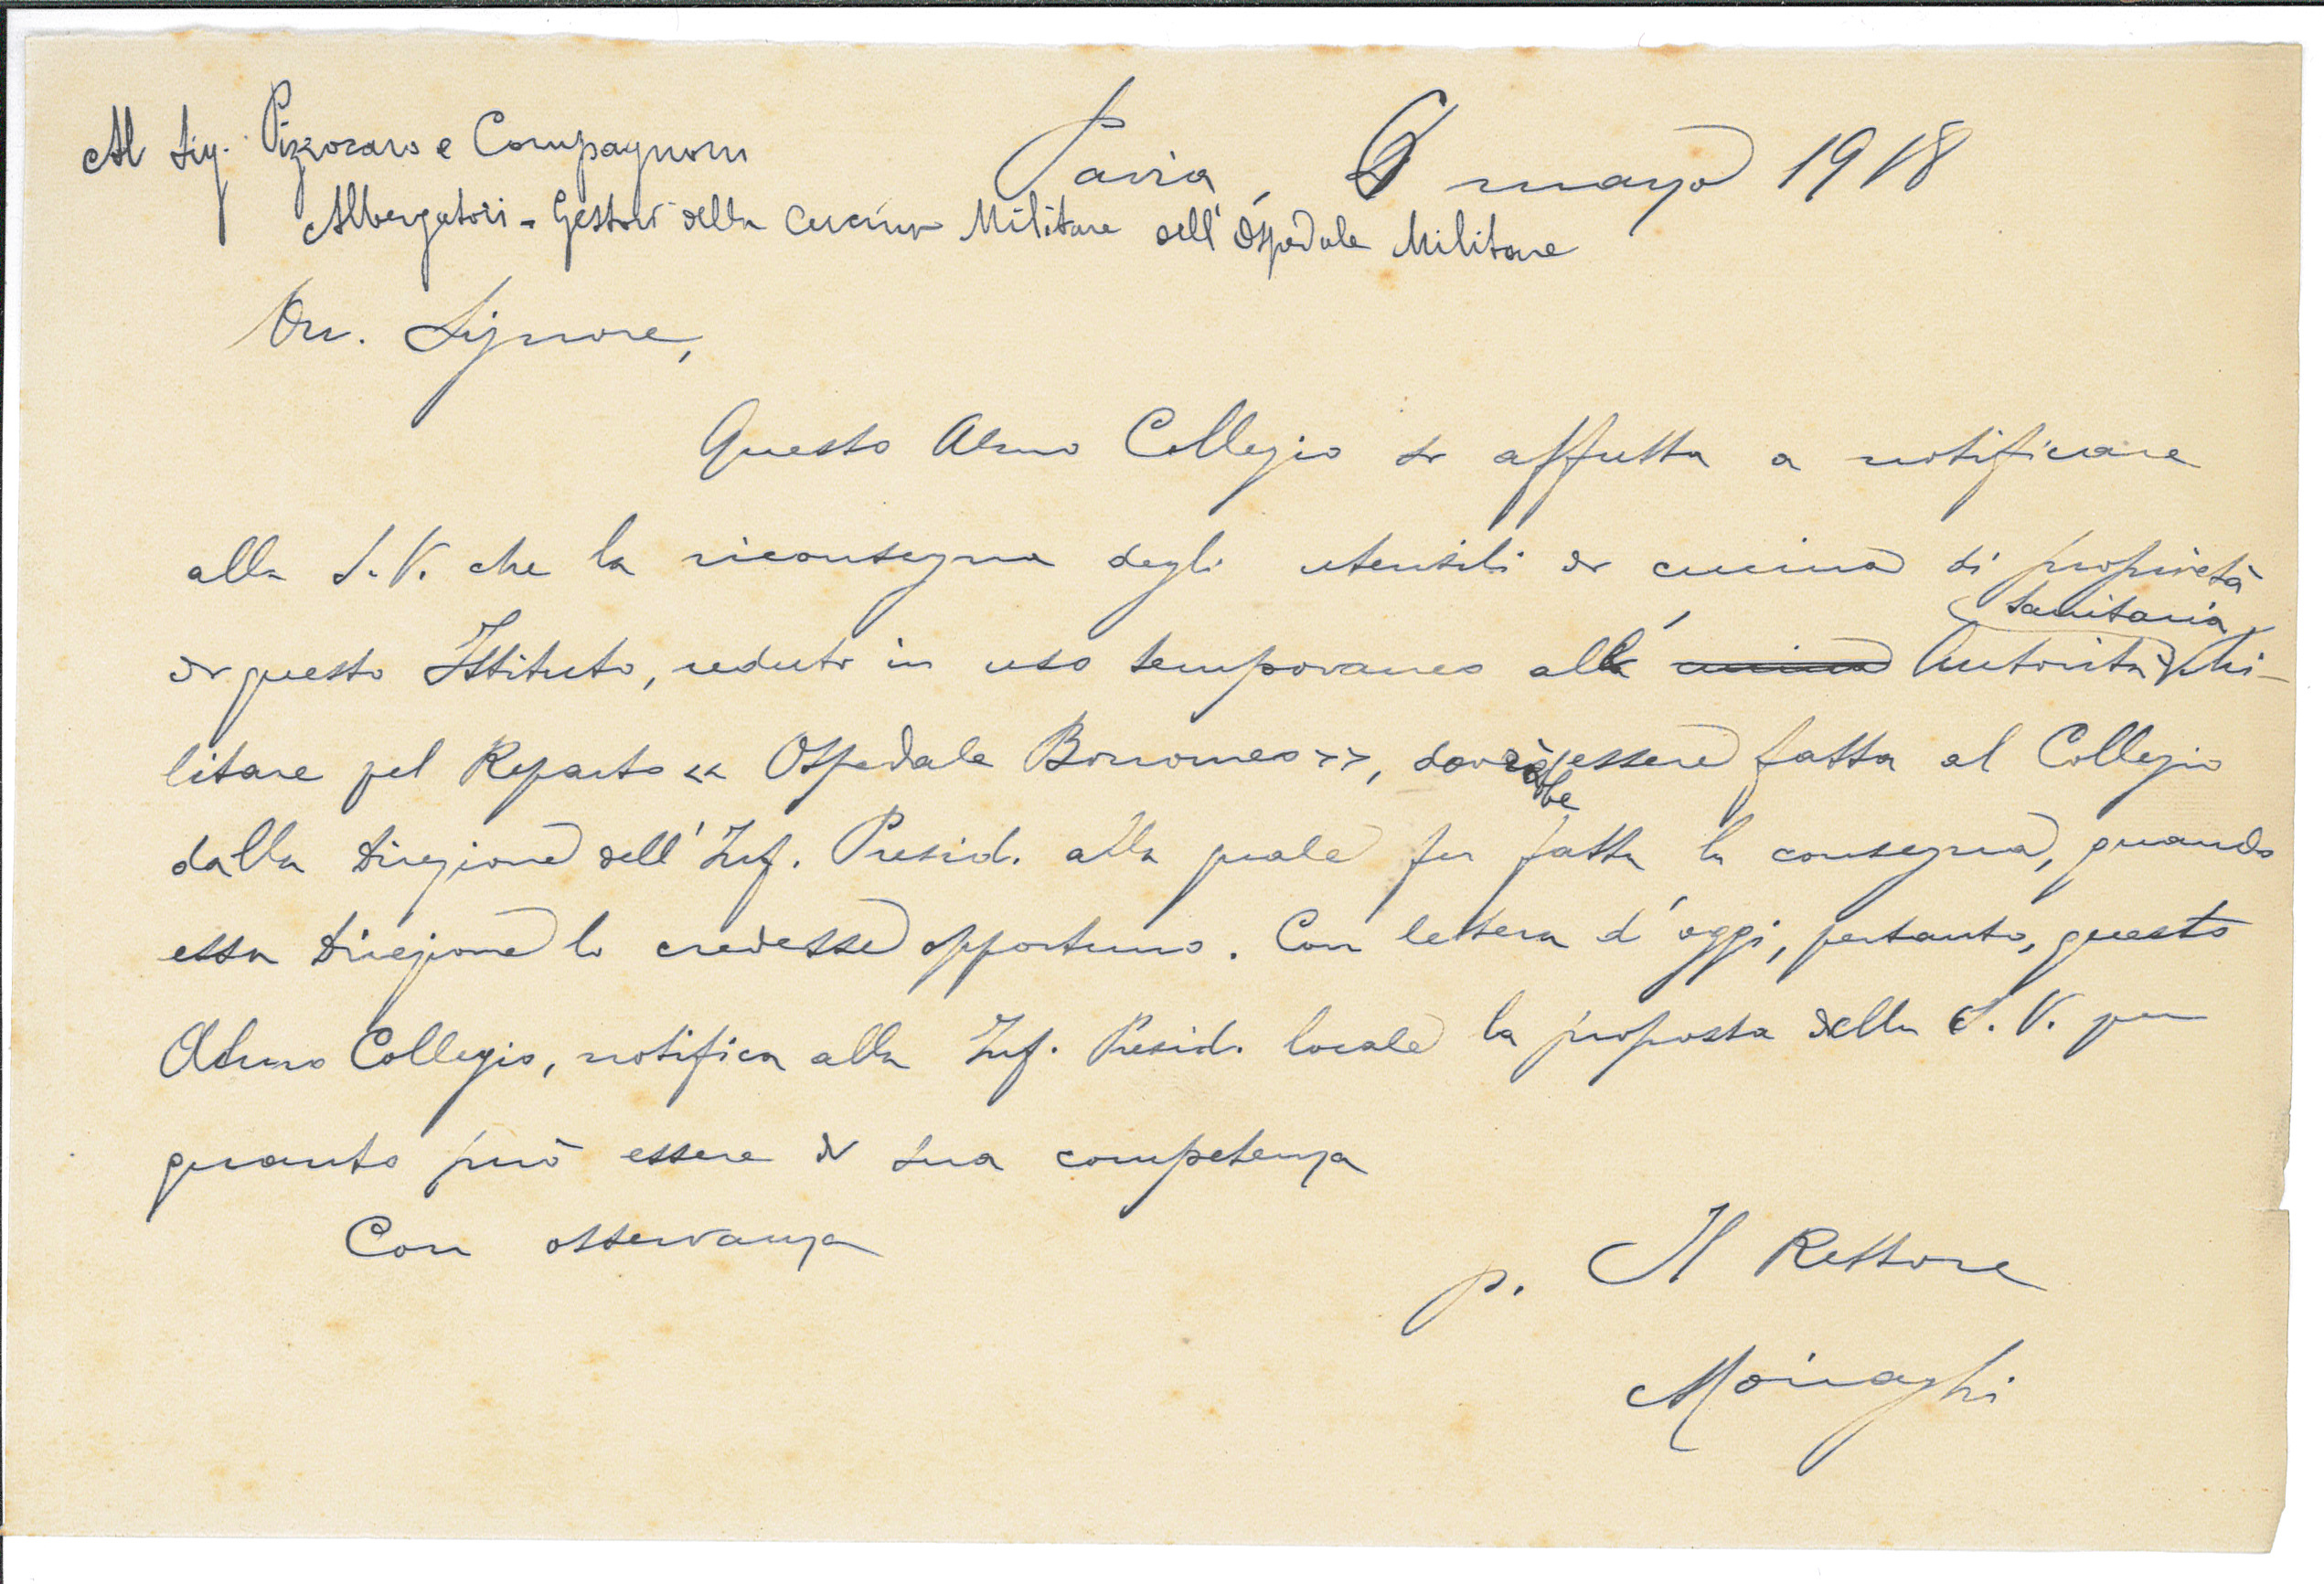 Al Sig. Pizzocaro e Compagnoni
Pavia, 6 marzo 1918
Albergatori - Gestori della Cucina Militare dell'Ospedale Militare
On. Signore,
Questo Almo Collegio si affretta a notificare
alla S.V. che la riconsegna degli utensili di cucina di proprietà
di questo Istituto, ceduti in uso temporaneo alla Autorità sanitaria Mi-
litare pel Reparto « Ospedale Borromeo », dovrebbe essere fatta al Collegio
dalla Direzione dell'Inf. Presid. alla quale fu fatta la consegna, quando
essa Direzione lo credesse opportuno. Con lettera d'oggi, pertanto, questo
Almo Collegio, notifica alla Inf. Presid. locale la proposta della S.V. per
quanto può essere di sua competenza
Con osservanza
p. Il Rettore
Moiraghi